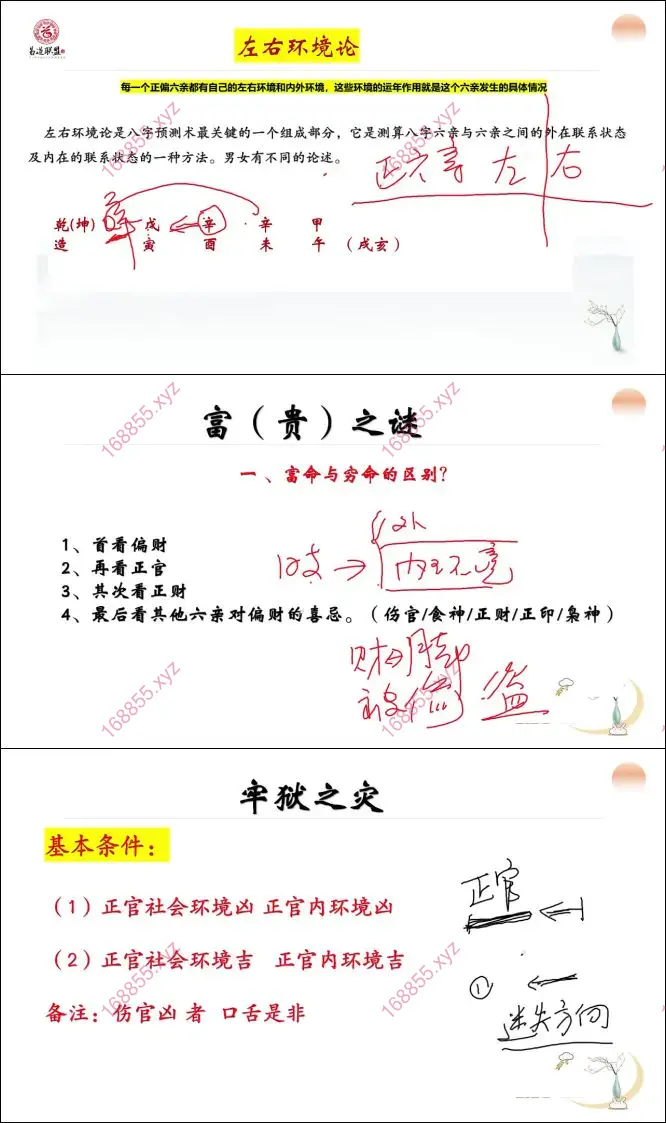 易道联盟
左右环境论
每一个正偏六亲都有自己的左右环境和内外环境，这些环境的运年作用就是这个六亲发生的具体情况
左右环境论是八字预测术最关键的一个组成部分，它是测算八字六亲与六亲之间的外在联系状态
及内在的联系状态的一种方法。男女有不同的论述。
正六亲 左 右
乾(坤) 戊 辛 辛 甲
造 寅 酉 未 午 （戌亥）
168855.xyz
168855.xyz
富（贵）之谜
168855.xyz
168855.xyz
一、富命与穷命的区别？
1、首看偏财
2、再看正官
3、其次看正财
4、最后看其他六亲对偏财的喜忌。（伤官/食神/正财/正印/枭神）
财
盗
168855.xyz
168855.xyz
牢狱之灾
基本条件：
正官
（1）正官社会环境凶 正官内环境凶
（2）正官社会环境吉 正官内环境吉
①
备注：伤官凶 者 口舌是非
迷失方向
168855.xyz
168855.xyz